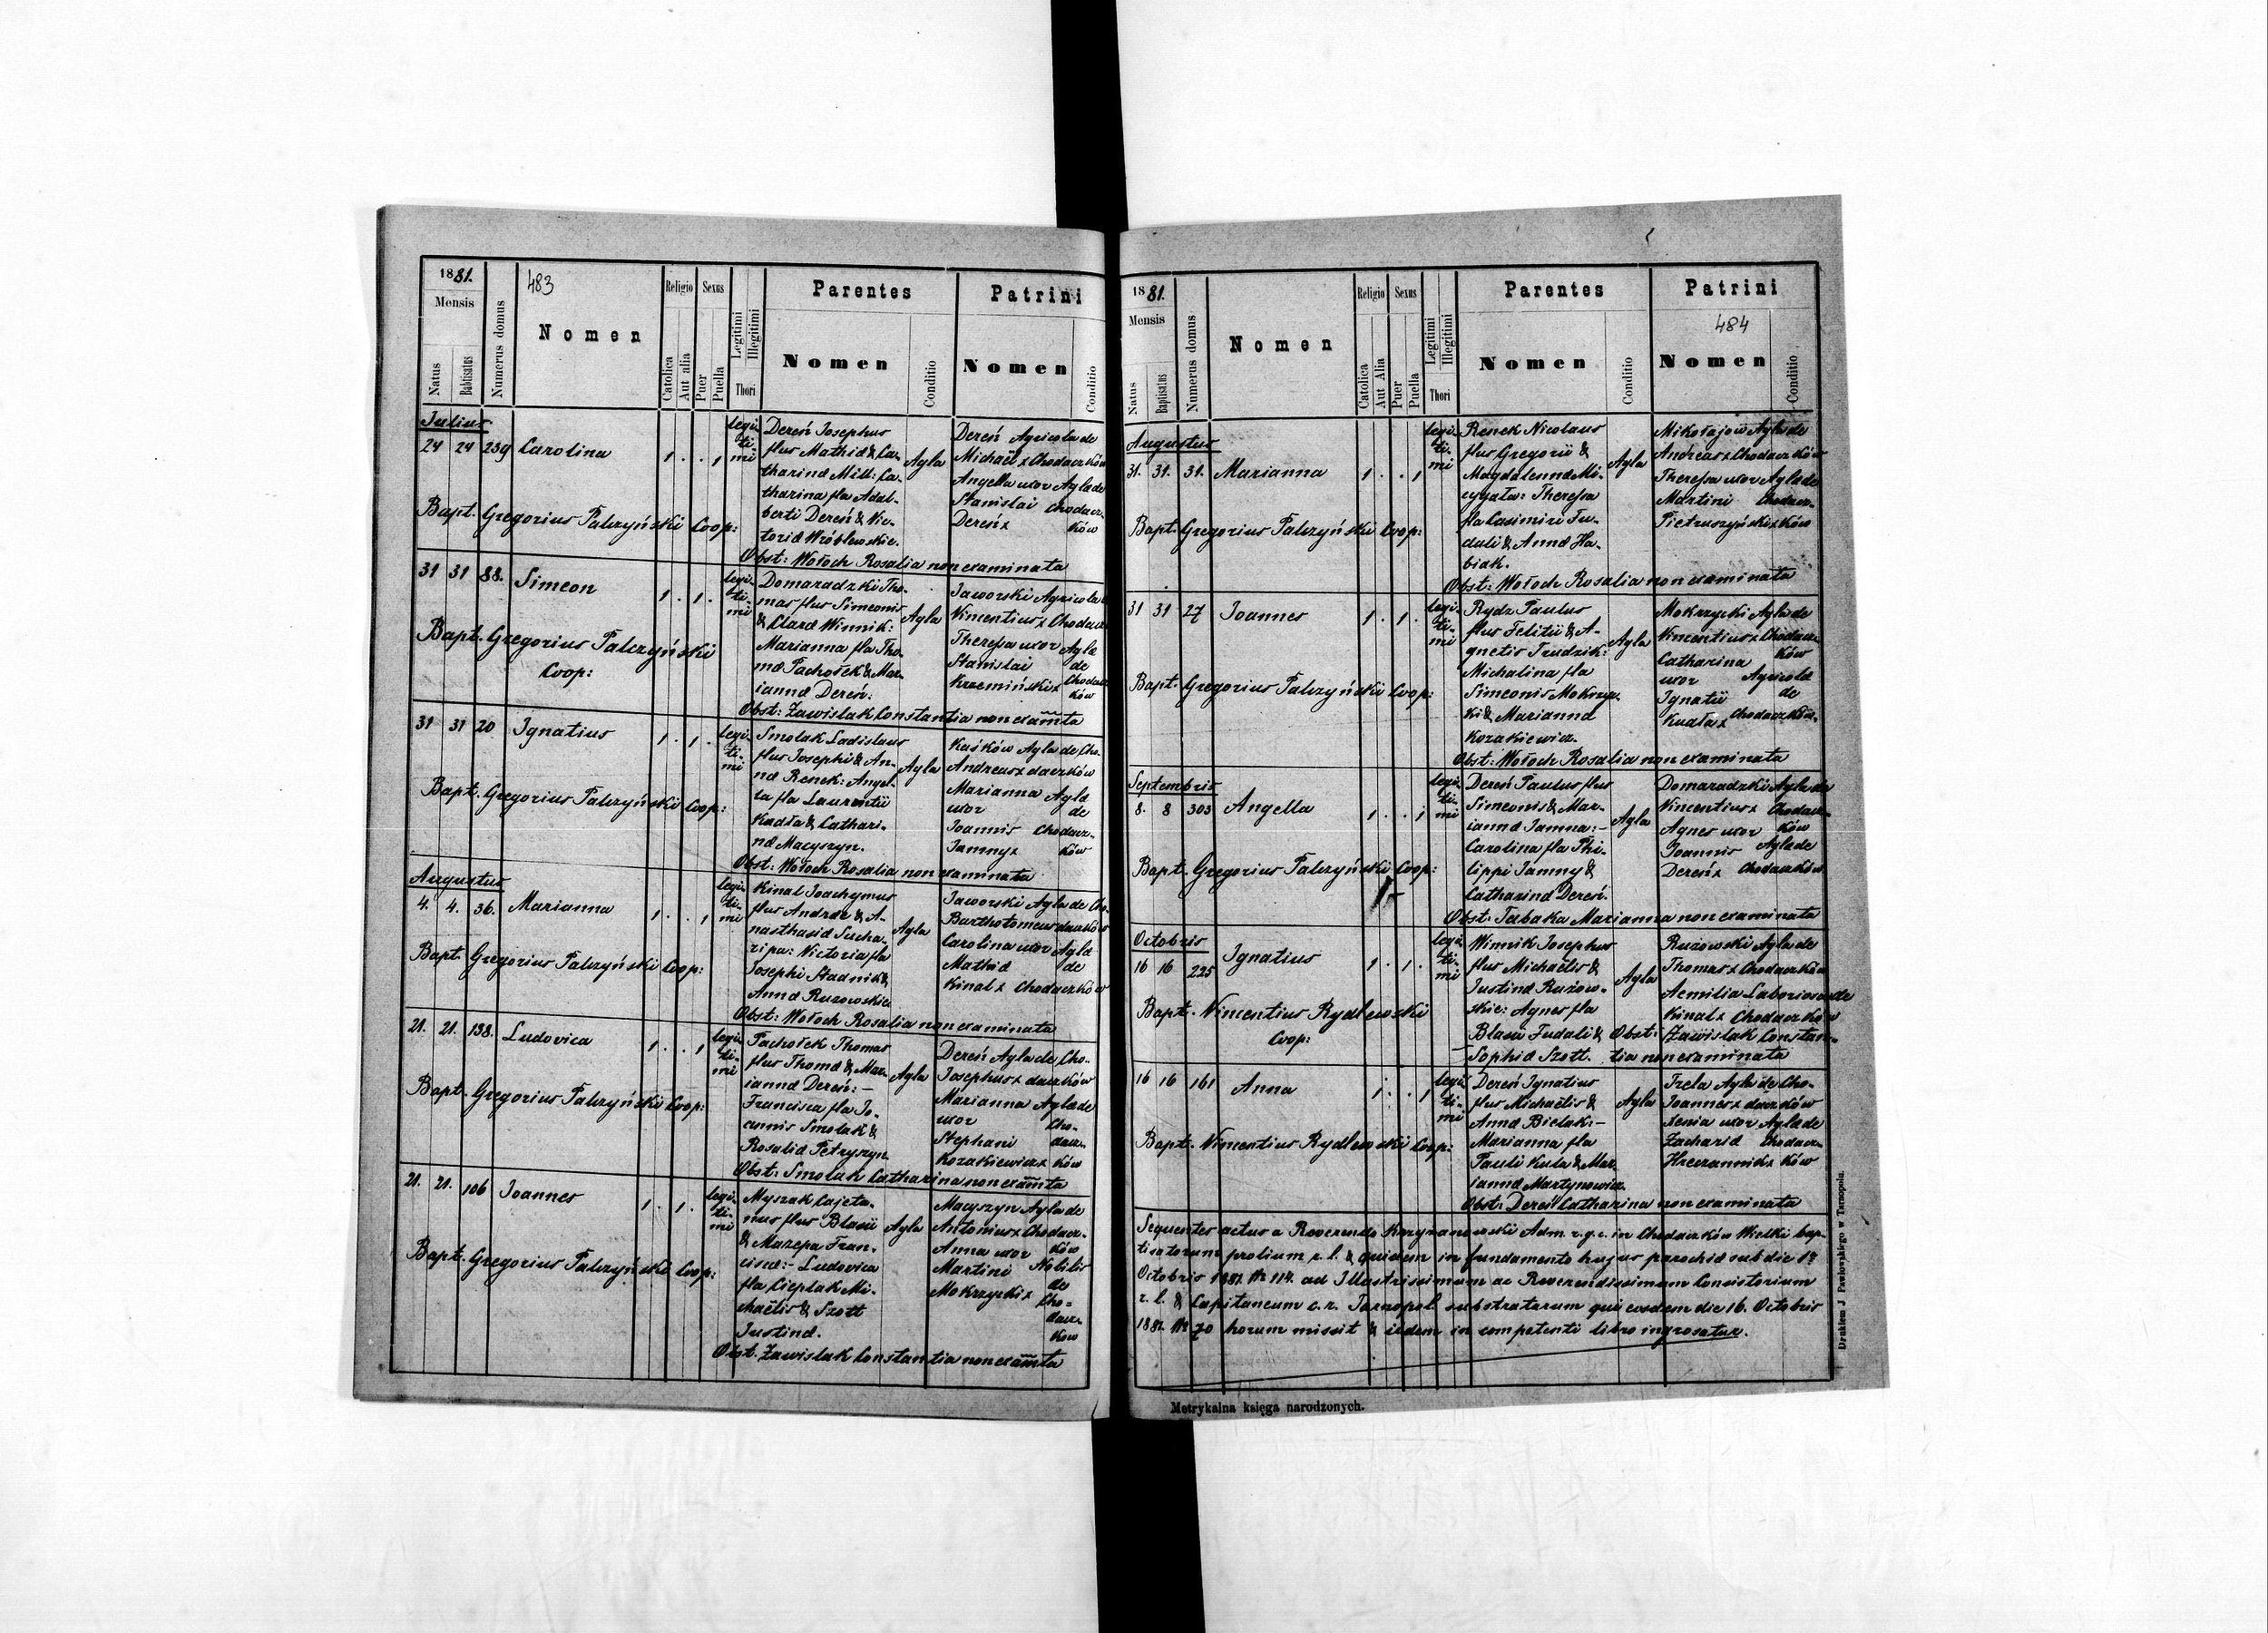 1881.
483
Mensis
Natus
Babtisatus
Numerus domus
Nomen
Religio
Catolica
Aut alia
Sexus
Puer
Puella
Legitimi
Illegitimi
Thori
Parentes
Nomen
Conditio
Patrini
Nomen
Conditio
Julius
24 24 239 Carolina 1 . . 1
legi-
ti-
mi
Dereń Josephus
flus Mathiæ & Ca-
tharinæ Mill: Ca-
tharina fla Adal-
berti Dereń & Vic-
toriæ Wróblewskie.
Agla
Dereń Agricola de
Michaël x Chodaczków
Angella uxor Agla de
Stanislai Chodacz-
Dereń x ków
Bapt. Gregorius Palczyński Coop:
Obst: Wołoch Rosalia non examinata
31 31 88. Simeon 1 . 1 .
legi-
ti-
mi
Domaradzki Tho-
mas flus Simeonis
& Claræ Winnik:
Marianna fla Tho-
mæ Pachołek & Mar-
iannæ Dereń:
Agla
Jaworski Agricola
Vincentius x Chodacz
Theressa uxor Agla
Stanislai de
Krzemiński x Chodacz
ków
Bapt. Gregorius Palczyński
Coop:
Obst: Zawislak Constantia non examta
31 31 20 Ignatius 1 . 1 .
legi-
ti-
mi
Smolak Ladislaus
flus Josephi & An-
næ Renek: Angel-
la fla Laurentii
Kudła & Cathari-
næ Macyszyn.
Agla
Kaśków Agla de Cho-
Andreas x daczków
Marianna Agla
uxor de
Joannis Chodacz-
Jamny x ków
Bapt. Gregorius Palczyński Coop:
Obst: Wołoch Rosalia non examinata
Augustus
4. 4. 36. Marianna 1 . . 1
legi-
ti-
mi
Kinal Joachymus
flus Andreæ & A-
nasthasiæ Sucha-
ripa: Victoria fla
Josephi Stadnik &
Annæ Ruzowskie
Agla
Jaworski Agla de Cho-
Bartholomeus daczków
Carolina uxor Agla
Mathiæ de
Kinal x Chodaczków
Bapt. Gregorius Palczyński Coop:
Obst: Wołoch Rosalia non examinata
21. 21. 138. Ludovica 1 . . 1
legi-
ti-
mi
Pachołek Thomas
flus Thomæ & Mar-
iannæ Dereń: -
Francisca fla Jo-
annis Smolak &
Rosaliæ Petryszyn
Agla
Dereń Agla de Cho-
Josephus x daczków
Marianna Agla de
uxor Cho-
Stephani dacz-
Kozakiewicz x ków
Bapt. Gregorius Palczyński Coop:
Obst: Smolak Catharina non examta
21. 21. 106 Joannes 1 . 1 .
legi-
ti-
mi
Myszak Cajeta-
nus flus Blasii
& Mazepa Fran-
ciscæ: - Ludovica
fla Cieplak Mi-
chaëlis & Szott
Justinæ.
Agla
Macyszyn Agla de
Antonius x Chodacz-
Anna uxor ków
Martini Nobilis
Mokrzycki x de
Cho-
dacz-
ków
Bapt. Gregorius Palczyński Coop:
Obst. Zawislak Constantia non examta
1881.
Mensis
Natus
Baptisatus
Numerus domus
Nomen
Religio
Catolica
Aut Alia
Sexus
Puer
Puella
Legitimi
Illegitimi
Thori
Parentes
Nomen
Conditio
Patrini
484
Nomen
Conditio
Augustus
31. 31. 31. Marianna 1 . . 1
legi-
ti-
mi
Renek Nicolaus
flus Gregorii &
Magdalennæ Mi-
cygała: Theressa
fla Casimiri Fu-
dali & Annæ Ha-
biak.
Agla
Mikołajow Agla de
Andreas x Chodaczków
Theressa uxor Agla de
Martini Chodacz-
Pietruszyński x ków
Bapt. Gregorius Palczyński Coop:
Obst: Wołoch Rosalia non examinata
31 31 27 Joannes 1 . 1 .
legi-
ti-
mi
Rydz Paulus
flus Felitii & A-
gnetis Trudzik:
Michalina fla
Simeonis Mokrzyc-
ki & Mariannæ
Kozakiewicz.
Agla
Mokrzycki Agla de
Vincentius x Chodacz-
Catharina ków
uxor Agricola
Ignatii de
Kudła x Chodaczków.
Bapt. Gregorius Palczyński Coop:
Obst: Wołoch Rosalia non examinata
Septembris
8. 8 303 Angella 1 . . 1
legi-
ti-
mi
Dereń Paulus flus
Simeonis & Mar-
iannæ Jamna: -
Carolina fla Phi-
lippi Jamny &
Catharinæ Dereń.
Agla
Domaradzki Agla de
Vincentius x Chodacz-
Agnes uxor ków
Joannis Agla de
Dereń x Chodaczków
Bapt. Gregorius Palczyński Coop:
Obst: Tabaka Marianna non examinata
Octobris
16 16 225 Ignatius 1 . 1 .
legi-
ti-
mi
Winnik Josephus
flus Michaëlis &
Justinæ Ruzow-
skie: Agnes fla
Blasii Fudali &
Sophiæ Szott.
Agla
Ruzowski Agla de
Thomas x Chodaczków
Aemilia Laboriosa de
Kinal x Chodaczków
Bapt. Vincentius Rydlewski
Coop:
Obst: Zawislak Constan-
tia non examinata
16 16 161 Anna 1 . . 1
legi-
ti-
mi
Dereń Ignatius
flus Michaëlis &
Annæ Bielak: -
Marianna fla
Pauli Kula & Mar-
iannæ Martynowicz.
Agla
Trela Agla de Cho-
Joannes x daczków
Xenia uxor Agla de
Zachariæ Chodacz-
Hreczannik x ków
Bapt. Vincentius Rydlewski Coop:
Obst: Dereń Catharina non examinata
Sequentes actus a Reverendo Krzyżanowski Adm. r.g.c. in Chodaczków Wielki bap-
tisatorum prolium r. l. & quidem in fundamento hujus parochiæ sub die 1º
Octobris 1881 Nr 114. ad Illustrissimum ac Reverendissimum Consistorium
r. l. & Capitaneum c.r. Tarnopol substratarum qui eosdem die 16. Octobris
1881. Nr 70 horum missit & iidem in competenti libro ingrosatur.
Drukiem J Pawłowskiego w Tarnopolu.
Metrykalna księga narodzonych.